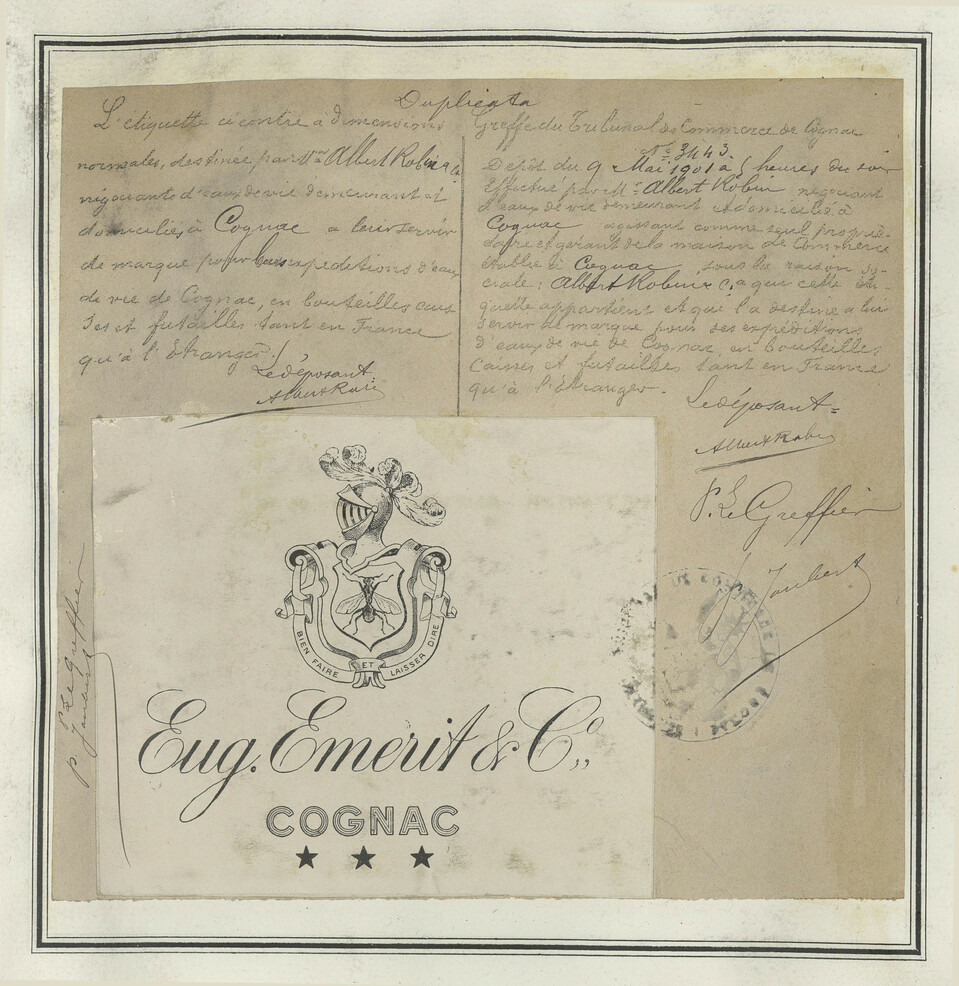 Duplicata
L'étiquette ci contre à dimensions
normales, destinée, par Mrs Albert Robin & Co
négociants d'eaux de vie demeurant et
domiciliés à Cognac a leur servir
de marque pour leurs expéditions d'eau
de vie de Cognac, en bouteilles cais
ses et futailles tant en France
qu'à l'Etranger./
Le déposant
Albert Robin
Greffe du Tribunal de Commerce de Cognac
No 3443.
Dépôt du 9 Mai 1901 à heures du soir
Effectué par Mr Albert Robin négociant
d'eaux de vie demeurant et domicilié à
Cognac agissant comme seul proprié-
taire et gérant de la maison de Commerce
établie à Cognac, sous la raison so-
ciale: Albert Robin & C, a que cette éti-
quette appartient et qui l'a destine a lui
servir de marque pour ses expéditions
d'eaux de vie de Cognac, en bouteilles
Caisses et futailles tant en France
qu'à l'étranger.
Le déposant=
Albert Robin
P. Le Greffier
Joubert
P. Le Greffier
Joubert
BIEN FAIRE ET LAISSER DIRE
Eug. Emerit & Co.,
COGNAC
★ ★ ★